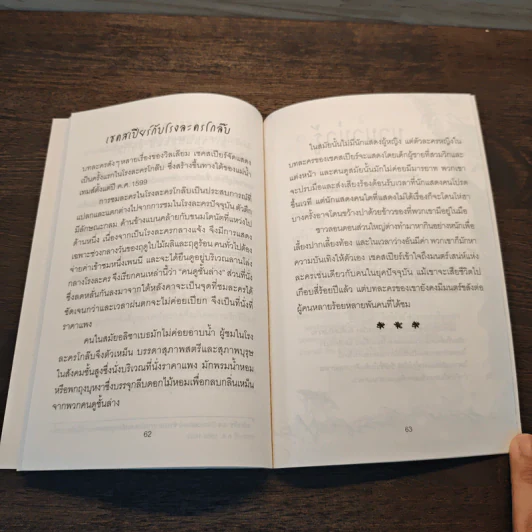 เชคสเปียร์กับโรงละครโกลบ
บทละครดังๆ หลายเรื่องของวิลเลียม เชคสเปียร์จัดแสดง
เป็นครั้งแรกในโรงละครโกลบ ซึ่งสร้างขึ้นทางใต้ของแม่น้ำ
เทมส์ตั้งแต่ปี ค.ศ. 1599
การชมละครในโรงละครโกลบเป็นประสบการณ์ที่
แปลกและแตกต่างไปจากการชมในโรงละครปัจจุบัน ตัวตึก
มีลักษณะกลม ด้านข้างแบนคล้ายกับขนมโดนัตที่แหว่งไป
ด้านหนึ่ง เนื่องจากเป็นโรงละครกลางแจ้ง จึงมีการแสดง
เฉพาะช่วงกลางวันของฤดูใบไม้ผลิและฤดูร้อน คนทั่วไปต้อง
จ่ายค่าเข้าชมหนึ่งเพนนี และจะได้ยืนดูอยู่บริเวณลานโล่ง
กลางโรงละคร จึงเรียกคนเหล่านี้ว่า "คนดูชั้นล่าง" ส่วนที่นั่ง
ซึ่งลดหลั่นกันลงมาจากใต้หลังคาจะเป็นจุดที่ชมละครได้
ชัดเจนกว่าและเวลาฝนตกจะไม่ค่อยเปียก จึงเป็นที่นั่งที่
ราคาแพง
คนในสมัยอลิซาเบธมักไม่ค่อยอาบน้ำ ผู้ชมในโรง
ละครโกลบจึงตัวเหม็น บรรดาสุภาพสตรีและสุภาพบุรุษ
ในสังคมชั้นสูงซึ่งนั่งบริเวณที่นั่งราคาแพง มักพรมน้ำหอม
หรือพกถุงบุหงาซึ่งบรรจุกลีบดอกไม้หอมเพื่อกลบกลิ่นเหม็น
จากพวกคนดูชั้นล่าง
62
ในสมัยนั้นไม่มีนักแสดงผู้หญิง แต่ตัวละครหญิงใน
บทละครของเชคสเปียร์จะแสดงโดยเด็กผู้ชายที่สวมวิกและ
แต่งหน้า และคนดูสมัยนั้นมักไม่ค่อยมีมารยาท พวกเขา
จะปรบมือและส่งเสียงร้องต้อนรับเวลาที่นักแสดงคนโปรด
ขึ้นเวที แต่นักแสดงคนใดที่แสดงไม่ได้เรื่องก็จะโดนโห่ฮา
บางครั้งอาจโดนขว้างปาด้วยข้าวของที่พวกเขามีอยู่ในมือ
ชาวลอนดอนส่วนใหญ่ต่างทำมาหากินอย่างหนักเพื่อ
เลี้ยงปากเลี้ยงท้อง และในเวลาว่างอันมีค่า พวกเขาก็มักหา
ความบันเทิงให้ตัวเอง เชคสเปียร์เข้าใจถึงมนตร์เสน่ห์แห่ง
ละครเช่นเดียวกับคนในยุคปัจจุบัน แม้เขาจะเสียชีวิตไป
เกือบสี่ร้อยปีแล้ว แต่บทละครของเขายังคงมีมนตร์ขลังต่อ
ผู้คนหลายร้อยหลายพันคนที่ได้ชม
* * *
63